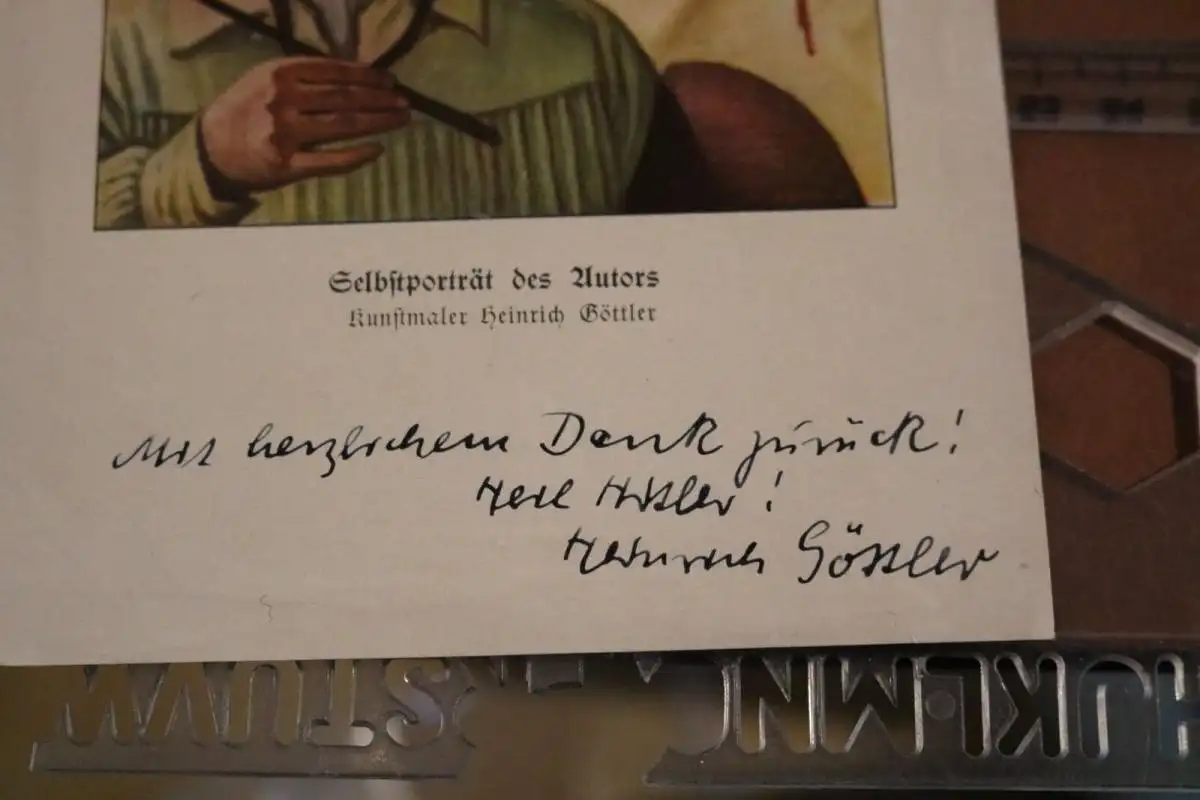 Selbstporträt des Autors
Kunstmaler Heinrich Göttler
Mit herzlichem Dank zurück!
Heil Hitler!
Heinrich Göttler
STUVW
JKLMN